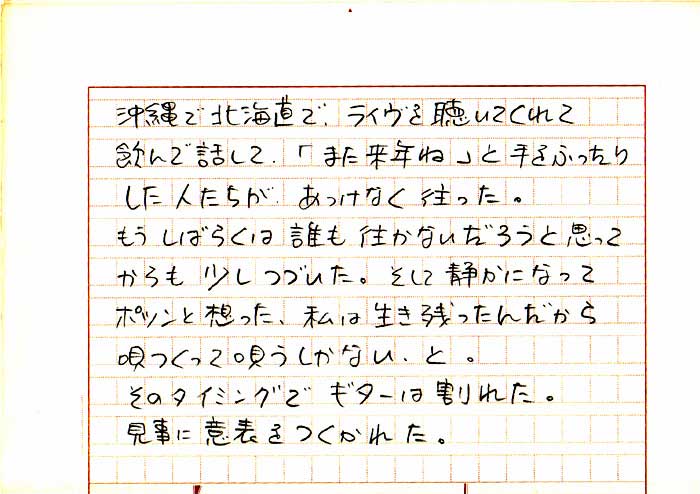 沖縄で北海道で、ライヴを聴いてくれて
飲んで話して、「また来年ね」と手をふったり
した人たちが、あっけなく往った。
もうしばらくは誰も往かないだろうと思って
からも少しつづいた。そして静かになって
ポツンと想った、私は生き残ったんだから
唄つくって唄うしかない、と。
そのタイミングでギターは割れた。
見事に意表をつくかれた。